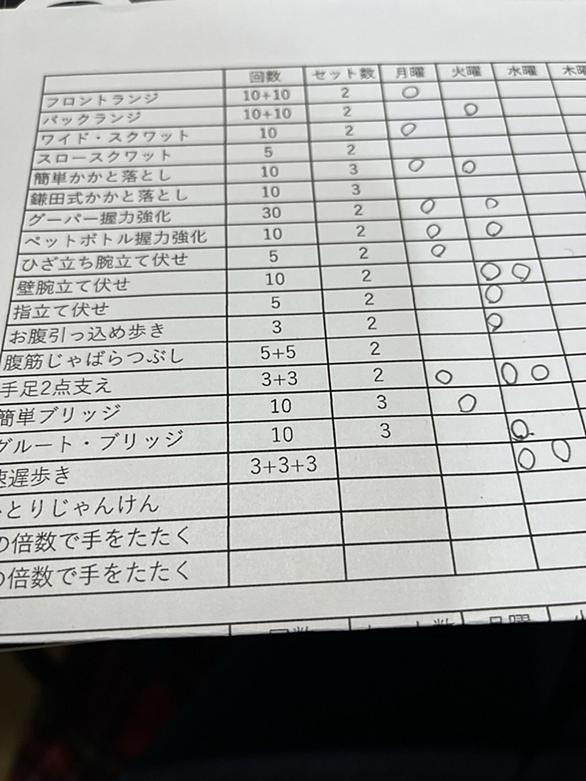 回数 セット数 月曜 火曜 水曜 木曜
フロントランジ 10+10 2
バックランジ 10+10 2
ワイド・スクワット 10 2
スロースクワット 5 2
簡単かかと落とし 10 3
鎌田式かかと落とし 10 3
グーパー握力強化 30 2
ペットボトル握力強化 10 2
ひざ立ち腕立て伏せ 5 2
壁腕立て伏せ 10 2
指立て伏せ 5 2
お腹引っ込め歩き 3 2
腹筋じゃばらつぶし 5+5 2
手足2点支え 3+3 2
簡単ブリッジ 10 3
グルート・ブリッジ 10 3
速遅歩き 3+3+3
とりじゃんけん
の倍数で手をたたく
の倍数で手をたたく